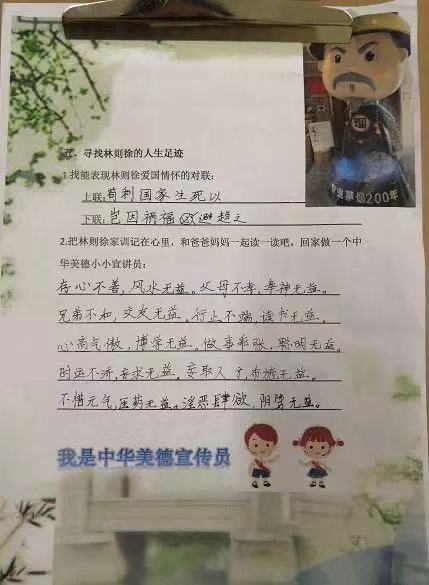 五、寻找林则徐的人生足迹
1.我能表现林则徐爱国情怀的对联：
上联：苟利国家生死以
下联：岂因祸福避趋之
2.把林则徐家训记在心里，和爸爸妈妈一起读一读吧，回家做一个中
华美德小小宣讲员：
存心不善，风水无益。父母不孝，奉神无益。
兄弟不和，交友无益。行止不端，读书无益。
心高气傲，博学无益。做事乖张，聪明无益。
时运不济，妄求无益。妄取人才，布施无益。
不惜元气，医药无益。淫恶肆欲，阴骘无益。
我是中华美德宣传员
烟
200年